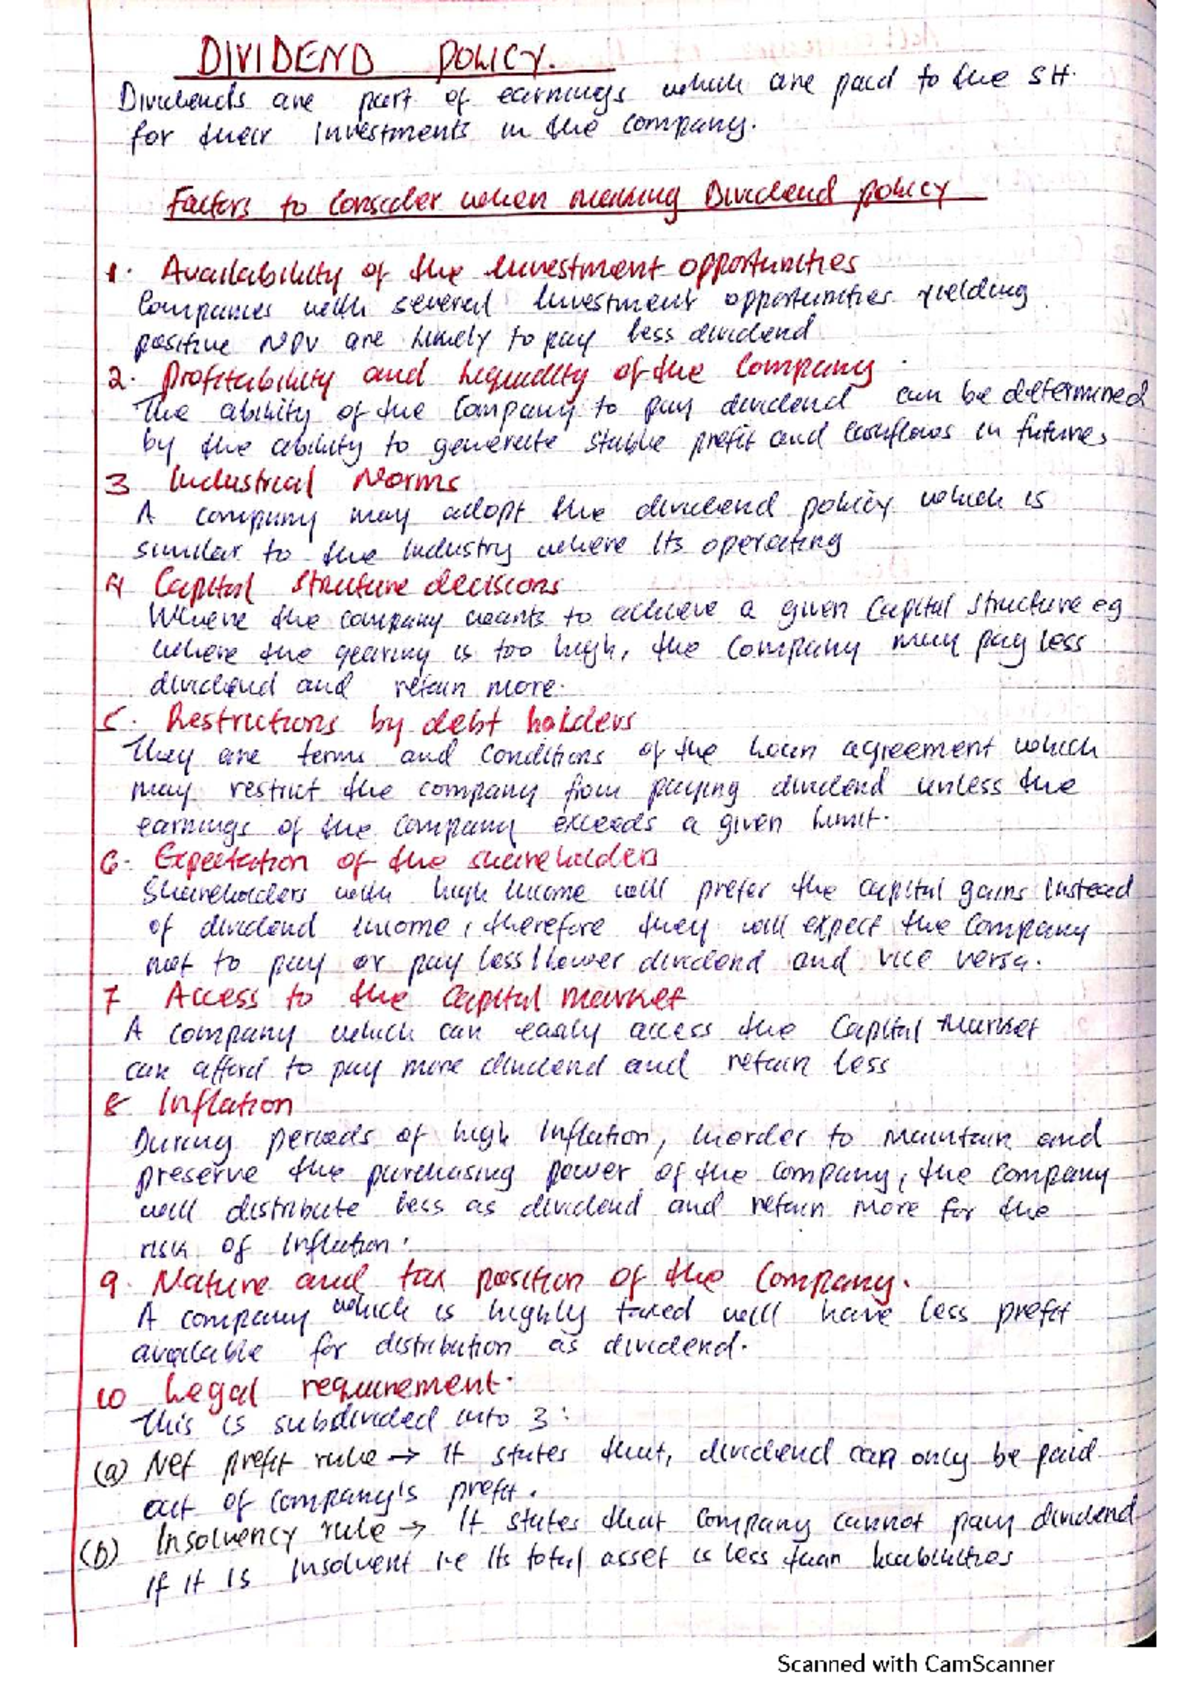 DIVIDEND POLICY.
Dividends are part of earnings which are paid to the SH.
for their investments in the company.
Factors to Consider when making Dividend policy
1. Availability of the investment opportunities
Companies with several investment opportunities yielding
positive NPV are likely to pay less dividend
2. Profitability and liquidity of the Company
The ability of the Company to pay dividend can be determined
by the ability to generate stable profit and cashflows in futures
3 Industrial Norms
A company may adopt the dividend policy which is
similar to the industry where its operating
4 Capital structure decisions
Where the company wants to achieve a given Capital structure eg
where the gearing is too high, the Company may pay less
dividend and retain more.
5. Restrictions by debt holders
They are terms and conditions of the loan agreement which
may restrict the company from paying dividend unless the
earnings of the company exceeds a given limit.
6. Expectation of the shareholders
Shareholders with high income will prefer the capital gains instead
of dividend income, therefore they will expect the Company
not to pay or pay less/lower dividend and vice versa.
7 Access to the capital market
A company which can easily access the Capital Market
can afford to pay more dividend and retain less
8 Inflation
During periods of high inflation, inorder to maintain and
preserve the purchasing power of the company, the company
will distribute less as dividend and retain more for the
risk of inflation.
9. Nature and tax position of the Company.
A company which is highly taxed will have less profit
available for distribution as dividend.
10 Legal requirement.
This is subdivided into 3:
(a) Net profit rule → It states that, dividend can only be paid
out of Company's profit.
(b) Insolvency rule → It states that company cannot pay dividend
if it is insolvent i.e its total asset is less than liabilities
Scanned with CamScanner